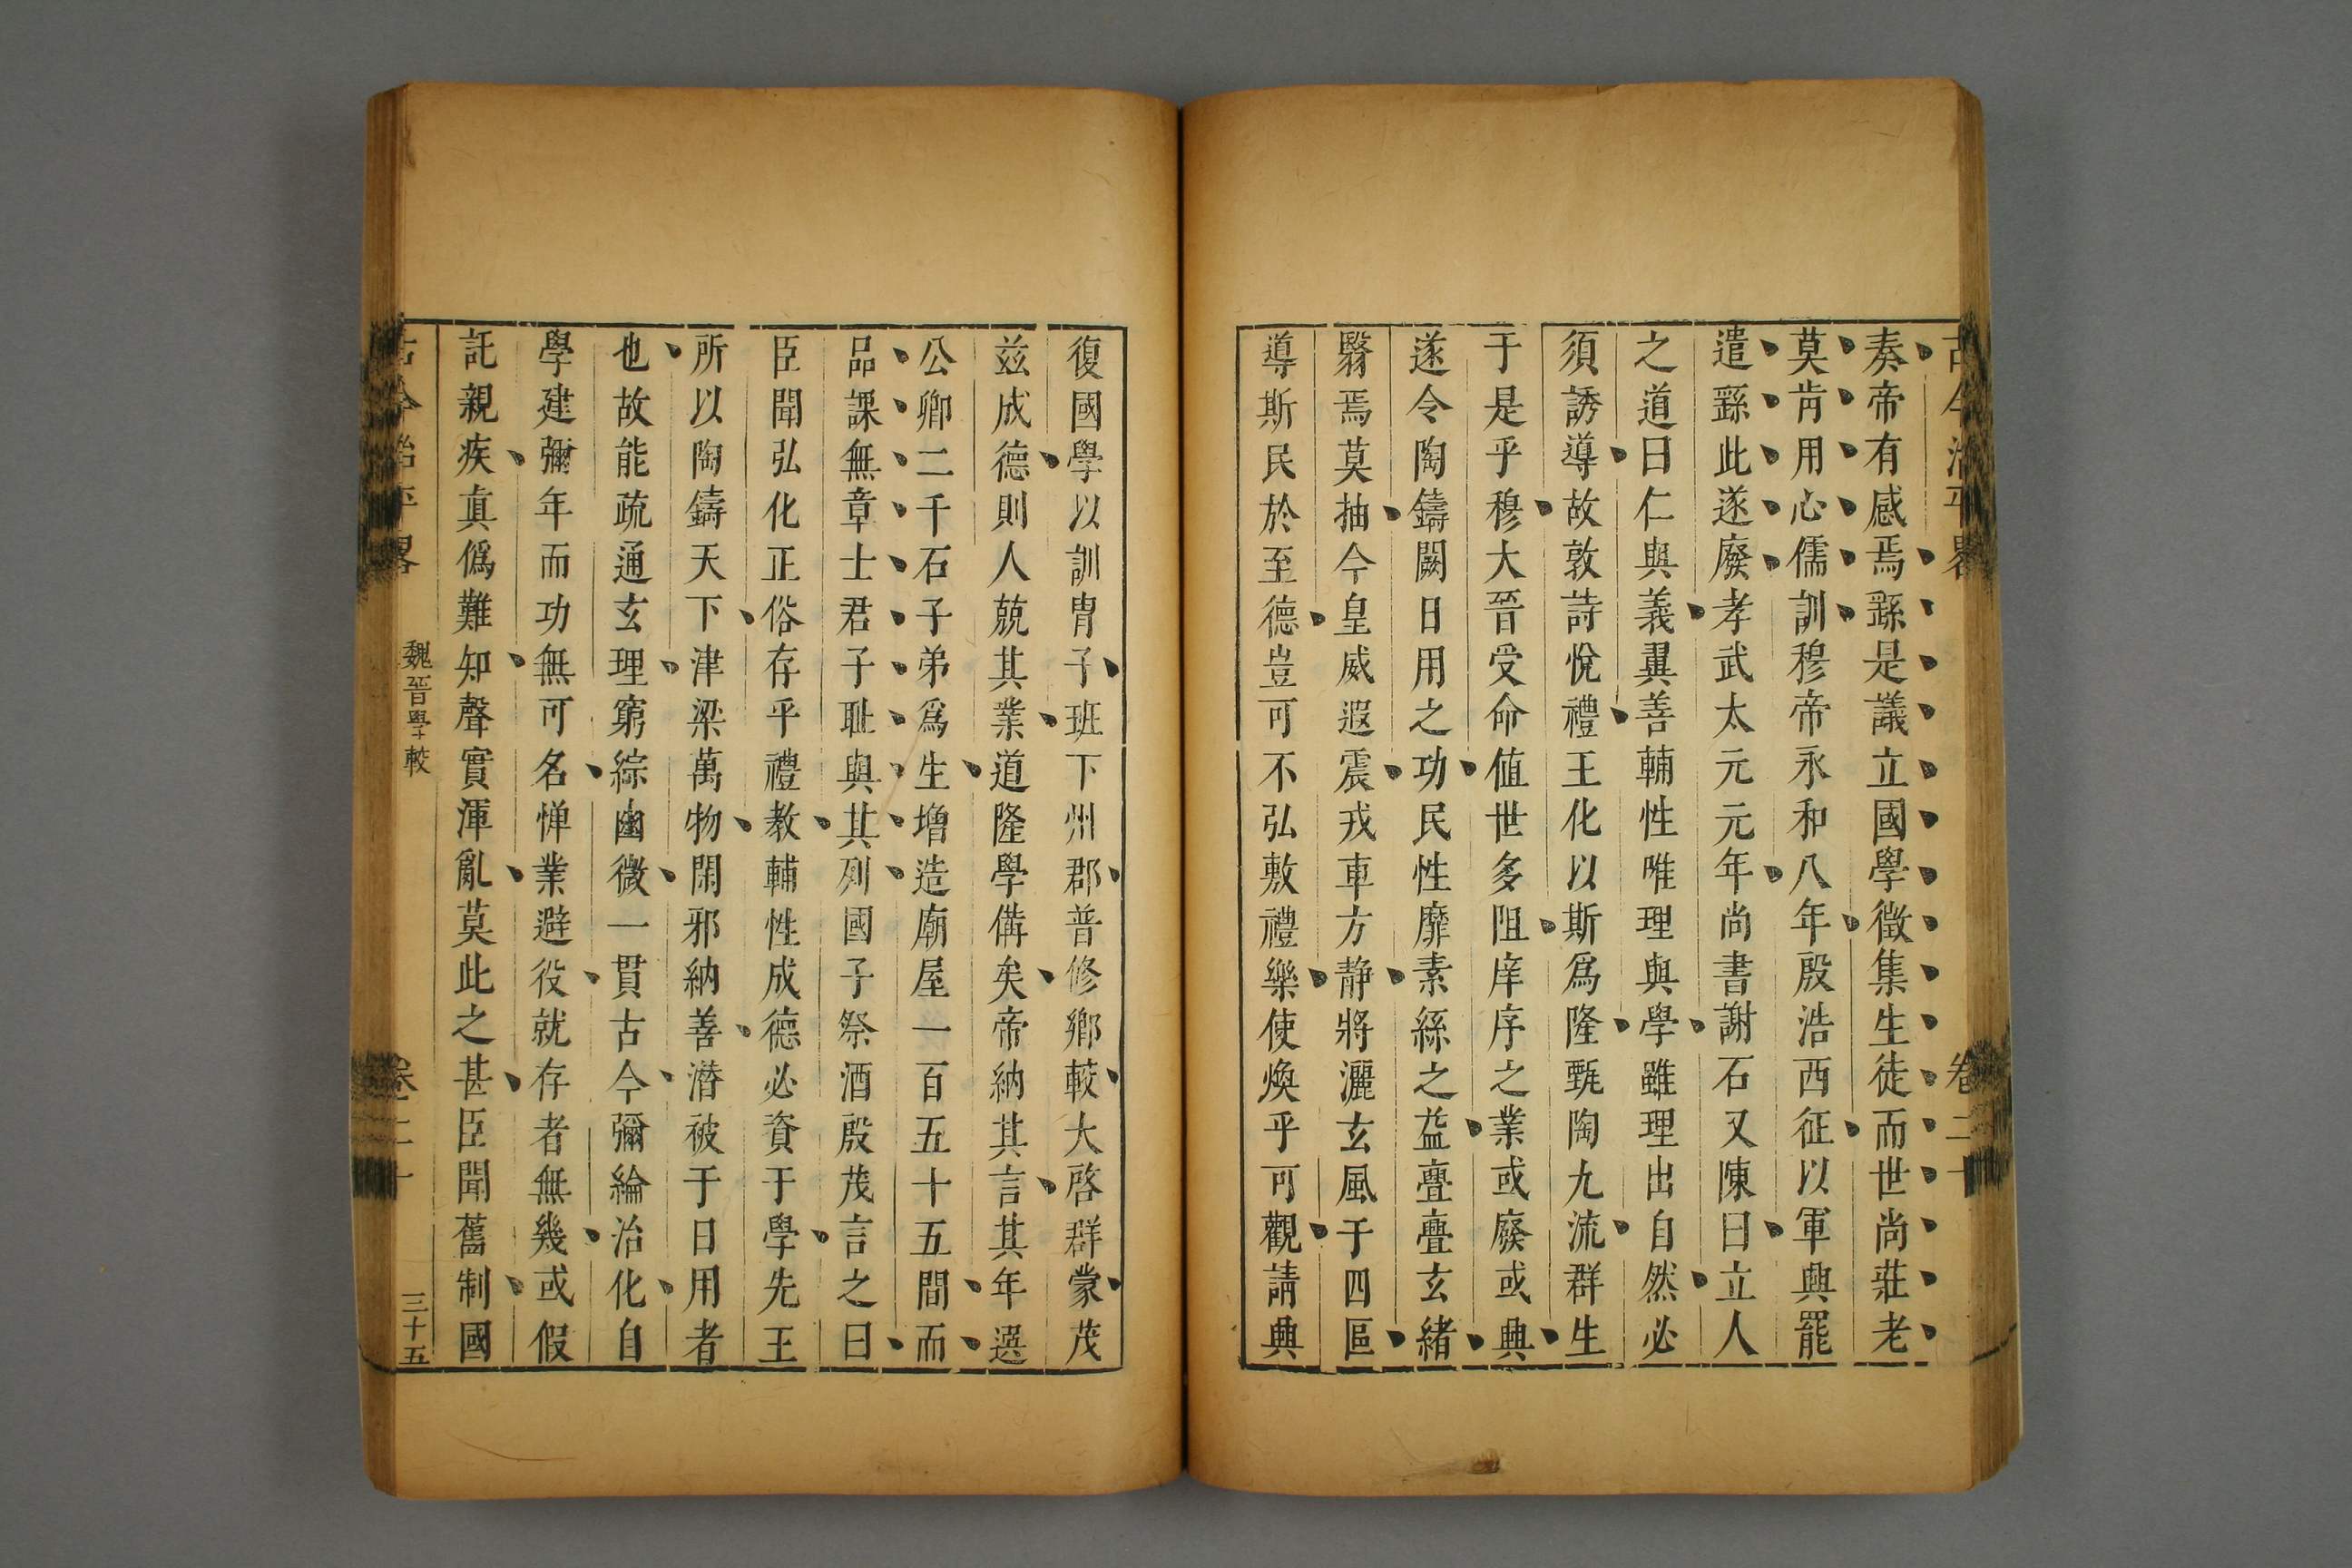 古今治平畧
卷二十
奏帝有感焉繇是議立國學徵集生徒而世尚莊老
莫肯用心儒訓穆帝永和八年殷浩西征以軍興罷
遣繇此遂廢孝武太元元年尚書謝石又陳曰立人
之道曰仁與義翼善輔性唯理與學雖理出自然必
須誘導故敦詩悅禮王化以斯爲隆甄陶九流群生
于是乎穆大晉受命值世多阻庠序之業或廢或興
遂令陶鑄闕日用之功民性靡素絲之益亹亹玄緒
翳焉莫抽今皇威遐震戎車方静將灑玄風于四區
導斯民於至德豈可不弘敷禮樂使煥乎可觀請興
復國學以訓胄子班下州郡普修鄉較大啓群蒙茂
兹成德則人兢其業道隆學備矣帝納其言其年選
公卿二千石子弟爲生增造廟屋一百五十五間而
品課無章士君子耻與其列國子祭酒殷茂言之曰
臣聞弘化正俗存乎禮教輔性成德必資于學先王
所以陶鑄天下津梁萬物閑邪納善潛被于日用者
也故能疏通玄理窮綜幽微一貫古今彌綸治化自
學建彌年而功無可名憚業避役就存者無幾或假
託親疾真僞難知聲實渾亂莫此之甚臣聞舊制國
古今治平畧
魏晉學較
卷二十
三十五